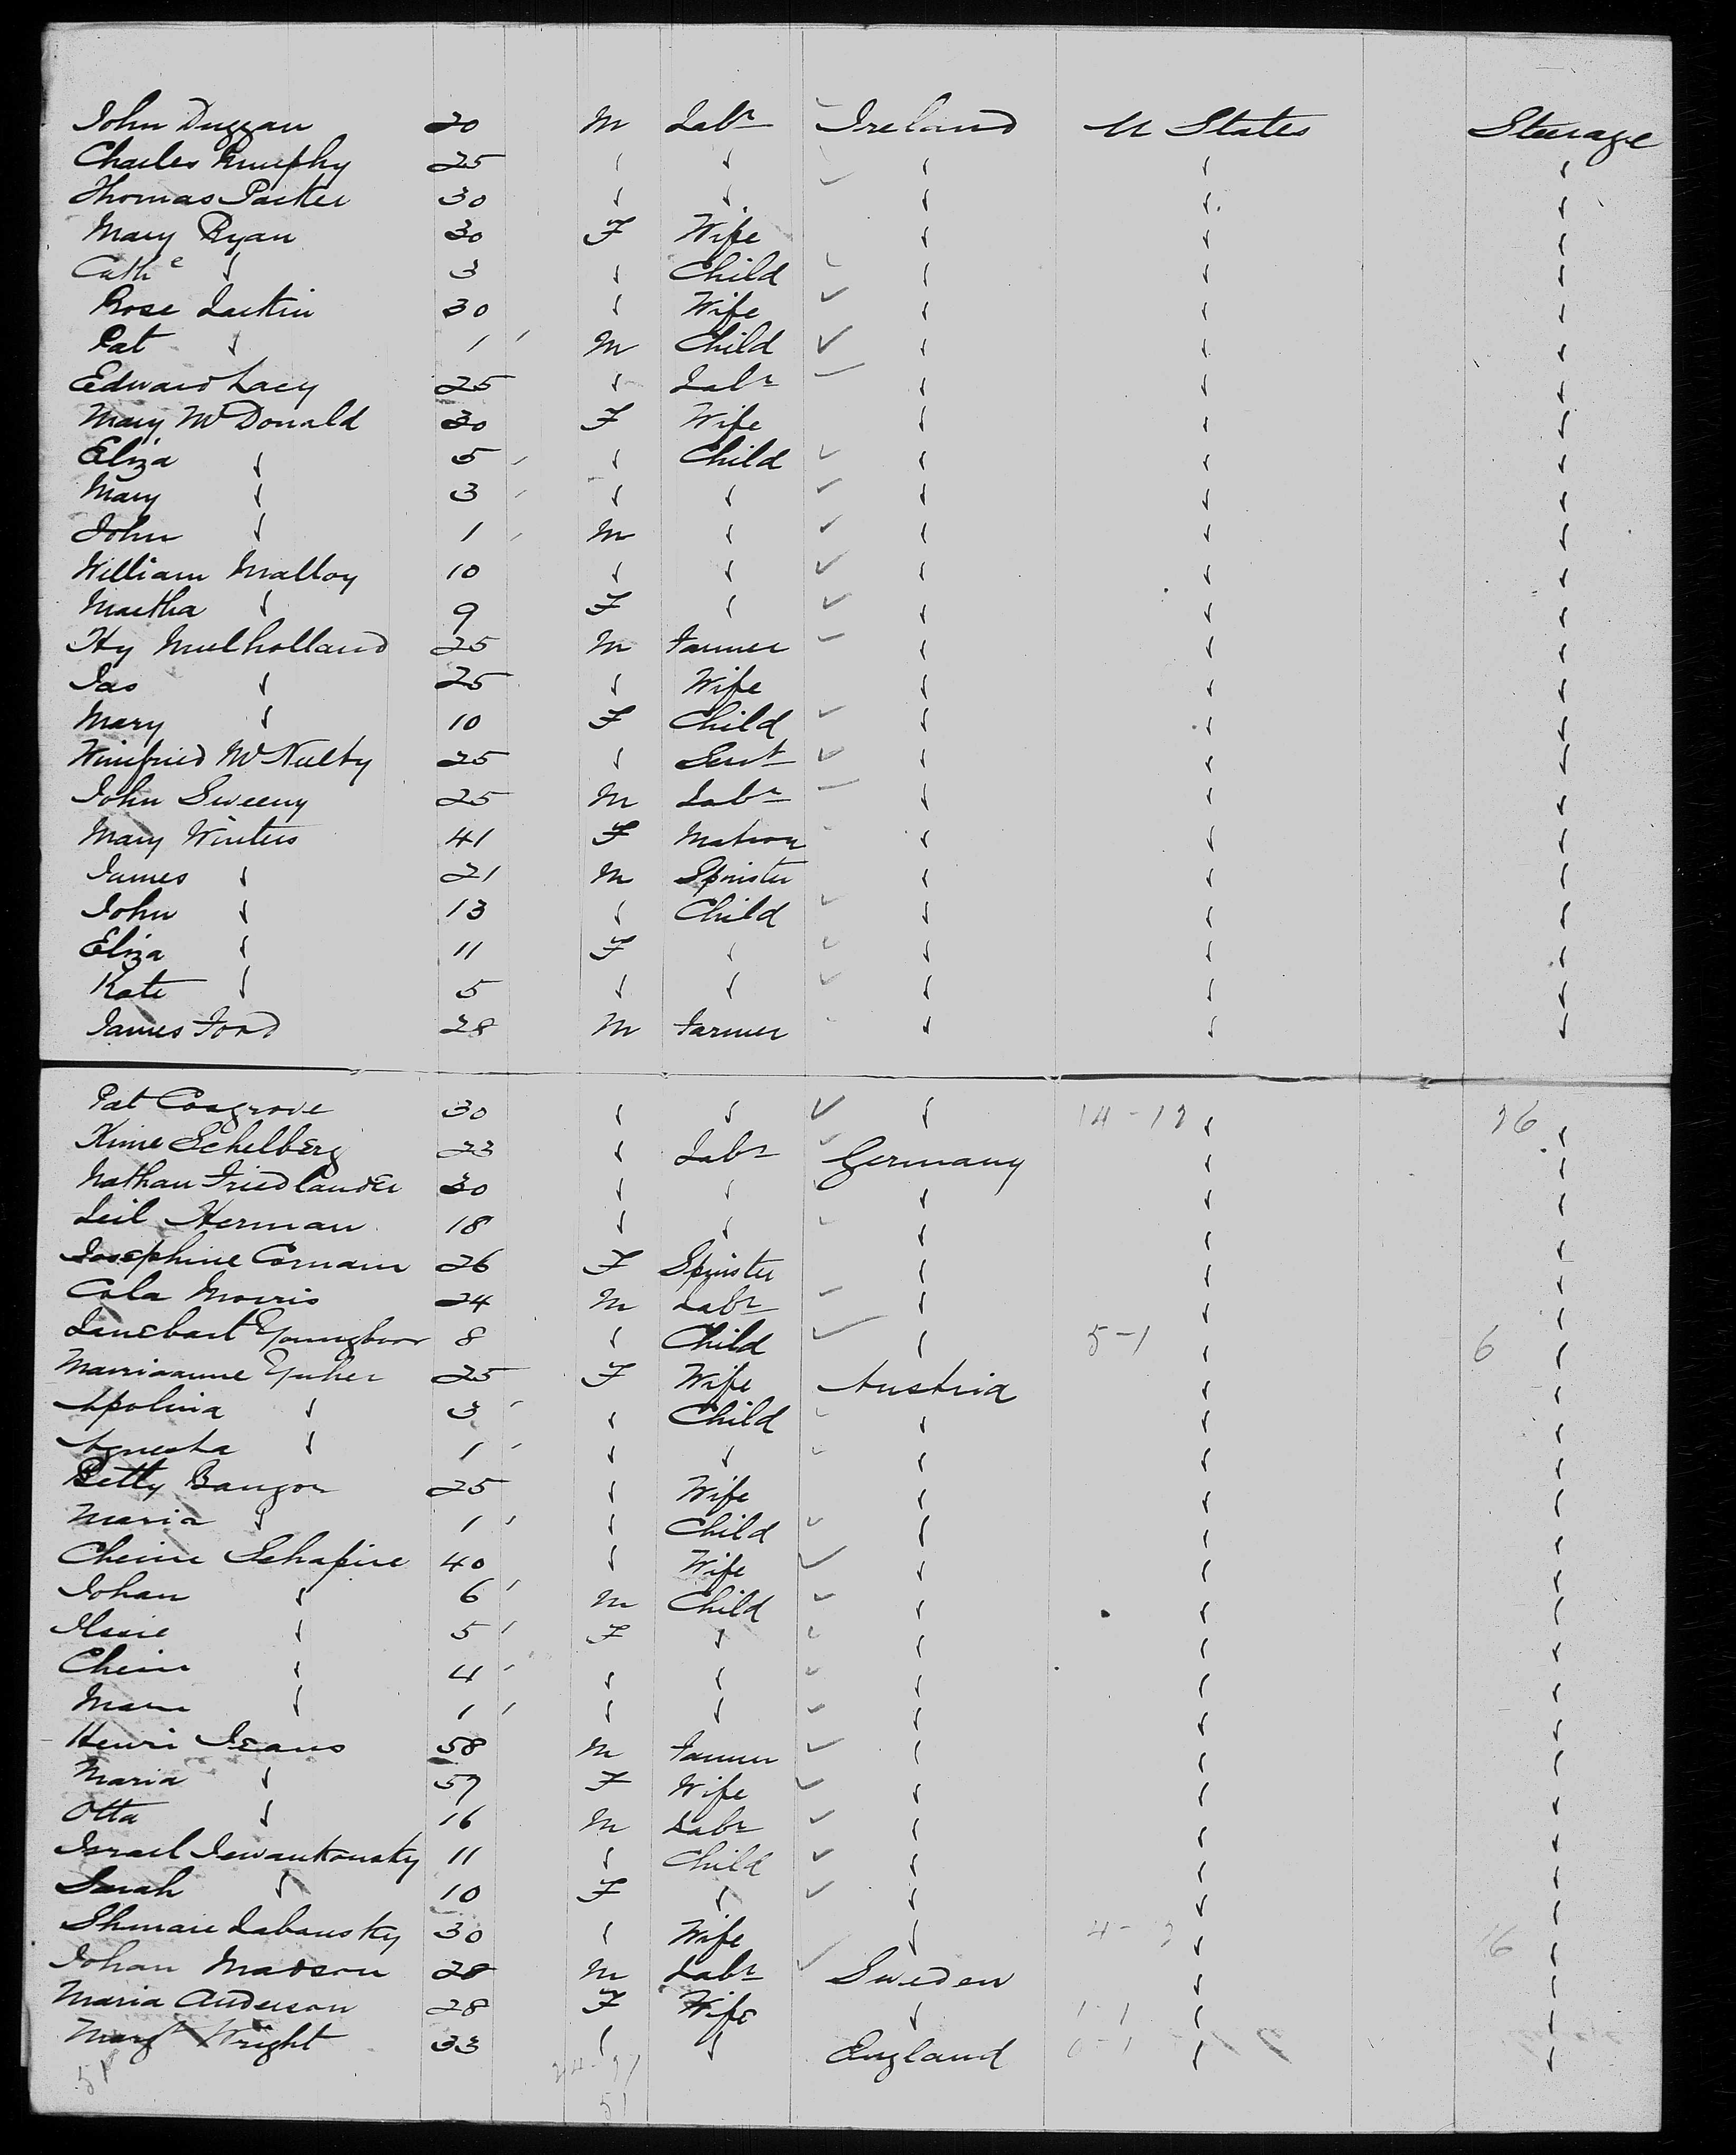 John Duggan 20 M Labr Ireland U States Steerage
Charles Murphy 25 " " " " "
Thomas Parker 30 " " " " "
Mary Ryan 30 F Wife " " "
Cathe " 3 " Child " " "
Rose Larkin 30 " Wife " " "
Pat " 1 M Child " " "
Edward Lacy 25 " Labr " " "
Mary McDonald 30 F Wife " " "
Eliza " 5 " Child " " "
Mary " 3 " " " " "
John " 1 M " " " "
William Malloy 10 " " " " "
Martha " 9 F " " " "
Hy Mulholland 25 M Farmer " " "
Jas " 25 " Wife " " "
Mary " 10 F Child " " "
Winifried McNulty 25 " Servt " " "
John Sweeny 25 M Labr " " "
Mary Winters 41 F Matron " " "
James " 21 M Spinster " " "
John " 13 " Child " " "
Eliza " 11 F " " " "
Kate " 5 " " " " "
James Ford 28 M Farmer " " "
Pat Cosgrove 30 " " " 14-12 " 26 "
Schelberg 23 " Labr Germany " "
Nathan Friedlander 30 " " " " "
Leil Herman 18 " " " " "
Josephine 26 F Spinster " " "
Cala Morris 24 M Labr " " "
8 " Child " 5-1 " 6 "
25 F Wife Austria " "
Apolina " 3 " Child " " "
" 1 " " " " "
Betty Bangor 25 " Wife " " "
Maria " 1 " Child " " "
Cheine Schapire 40 " Wife " " "
Johan " 6 M Child " " "
" 5 F " " " "
" 4 " " " " "
" 1 " " " " "
Henri Jeans 58 M Farmer " " "
Maria " 57 F Wife " " "
Otta " 16 M Labr " " "
Israel 11 " Child " " "
Sarah " 10 F " " " "
Labousky 30 " Wife " " "
Johan Madson 28 M Labr Sweden " "
Maria Anderson 28 F Wife " 1-1 " "
Margt Wright 33 " " England 0-1 " "
51
51